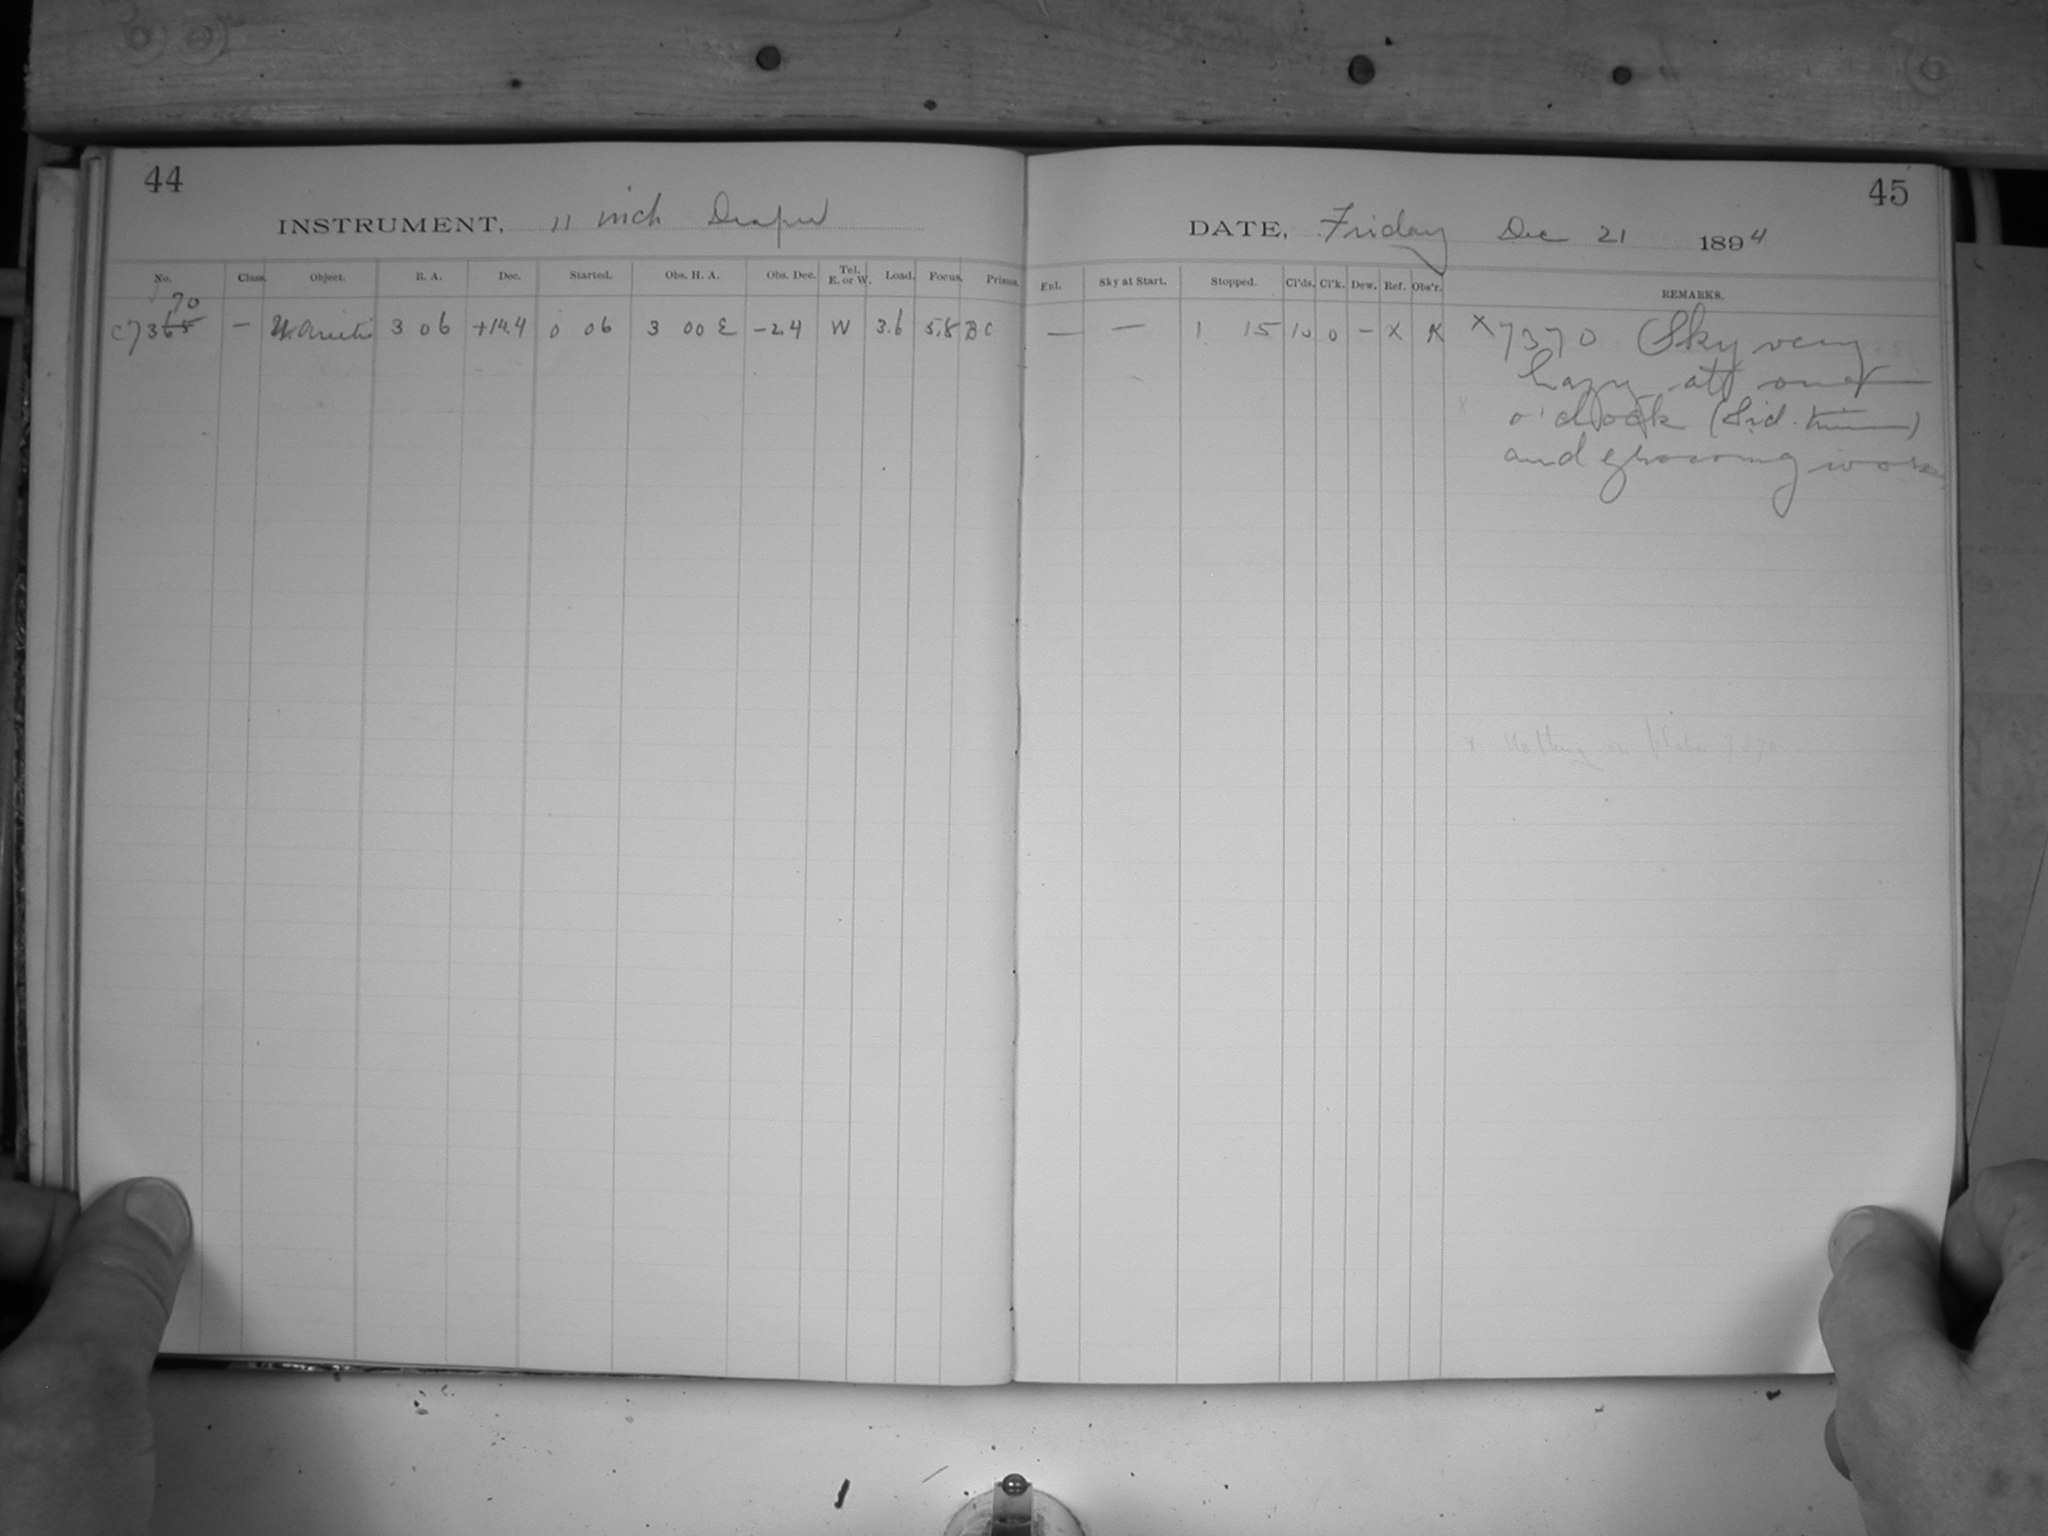 44
INSTRUMENT, 11 inch Draper
No. Class. Object. R. A. Dec. Started. Obs. H. A. Obs. Dec. Tel. E. or W. Load. Focus. Prisms.
70
C7365 — U. Arietis 3 06 +14.4 0 06 3 00 E -2.4 W 3.6 5.8 B C
45
DATE, Friday Dec 21 1894
Enl. Sky at Start. Stopped. Cl'ds. Cl'k. Dew. Ref. Obs'r. REMARKS.
— — 1 15 10 0 – x K x 7370 Sky very
hazy at one
o'clock (Sid. time)
and growing worse
x Nothing on plate 7370